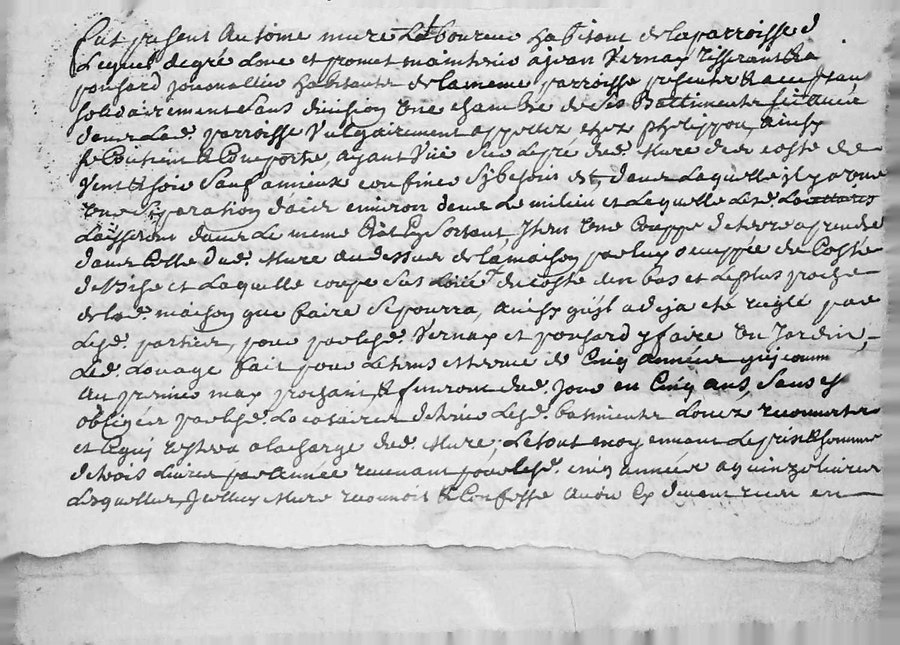 fut present Antoine mure Laboureur habitant de la parroisse d
Lequel de gré Loue et promet maintenir a jean Vernay Tisserant &a
ponsard journallier habitants de la meme parroisse presents & acceptans
solidairement sans division Une chambre de ses Battiments scituée
dans Lad. parroisse Vulgairement appellez chez philippon, Ainsy
se Contient & Comporte, ayant Vüe sur le pré dud. Mure du costé de
Vent & soir Sauf a mieux confiner Sy besoin est, dans Laquelle il y a Une
Une Separation d'ais environ dans Le milieu et Laquelle Lesd.
Laisseront dans Le meme Etat En Sortant Item Une Couppe de terre a prendre
dans Celle dud. Mure au dessus de la maison par luy occuppée du Costé
de Bise et Laquelle coupe sus du costé d'en bas et Le plus proche
de lad. maison que faire Se pourra, Ainsy qu'il a deja eté reglé par
Lesd. parties, pour par lesd. Vernay et ponsard y faire Un Jardin,
Led. Louage fait pour Le tems et terme de Cinq années quy comm
Au premier may prochain, & finiront dud. jour en Cinq ans, Sans et
obligés par lesd. Locataires de tenir Lesd. bastiments Louez recouverts
et Cequy restera a la charge dud. Mure; Le tout moyennant Le prix & somme
de trois Livres par Année revenant pour lesd. cinq années a quinze livres
Lesquelles, Icelluy Mure reconnoit & Confesse Avoir Cy devant receu en